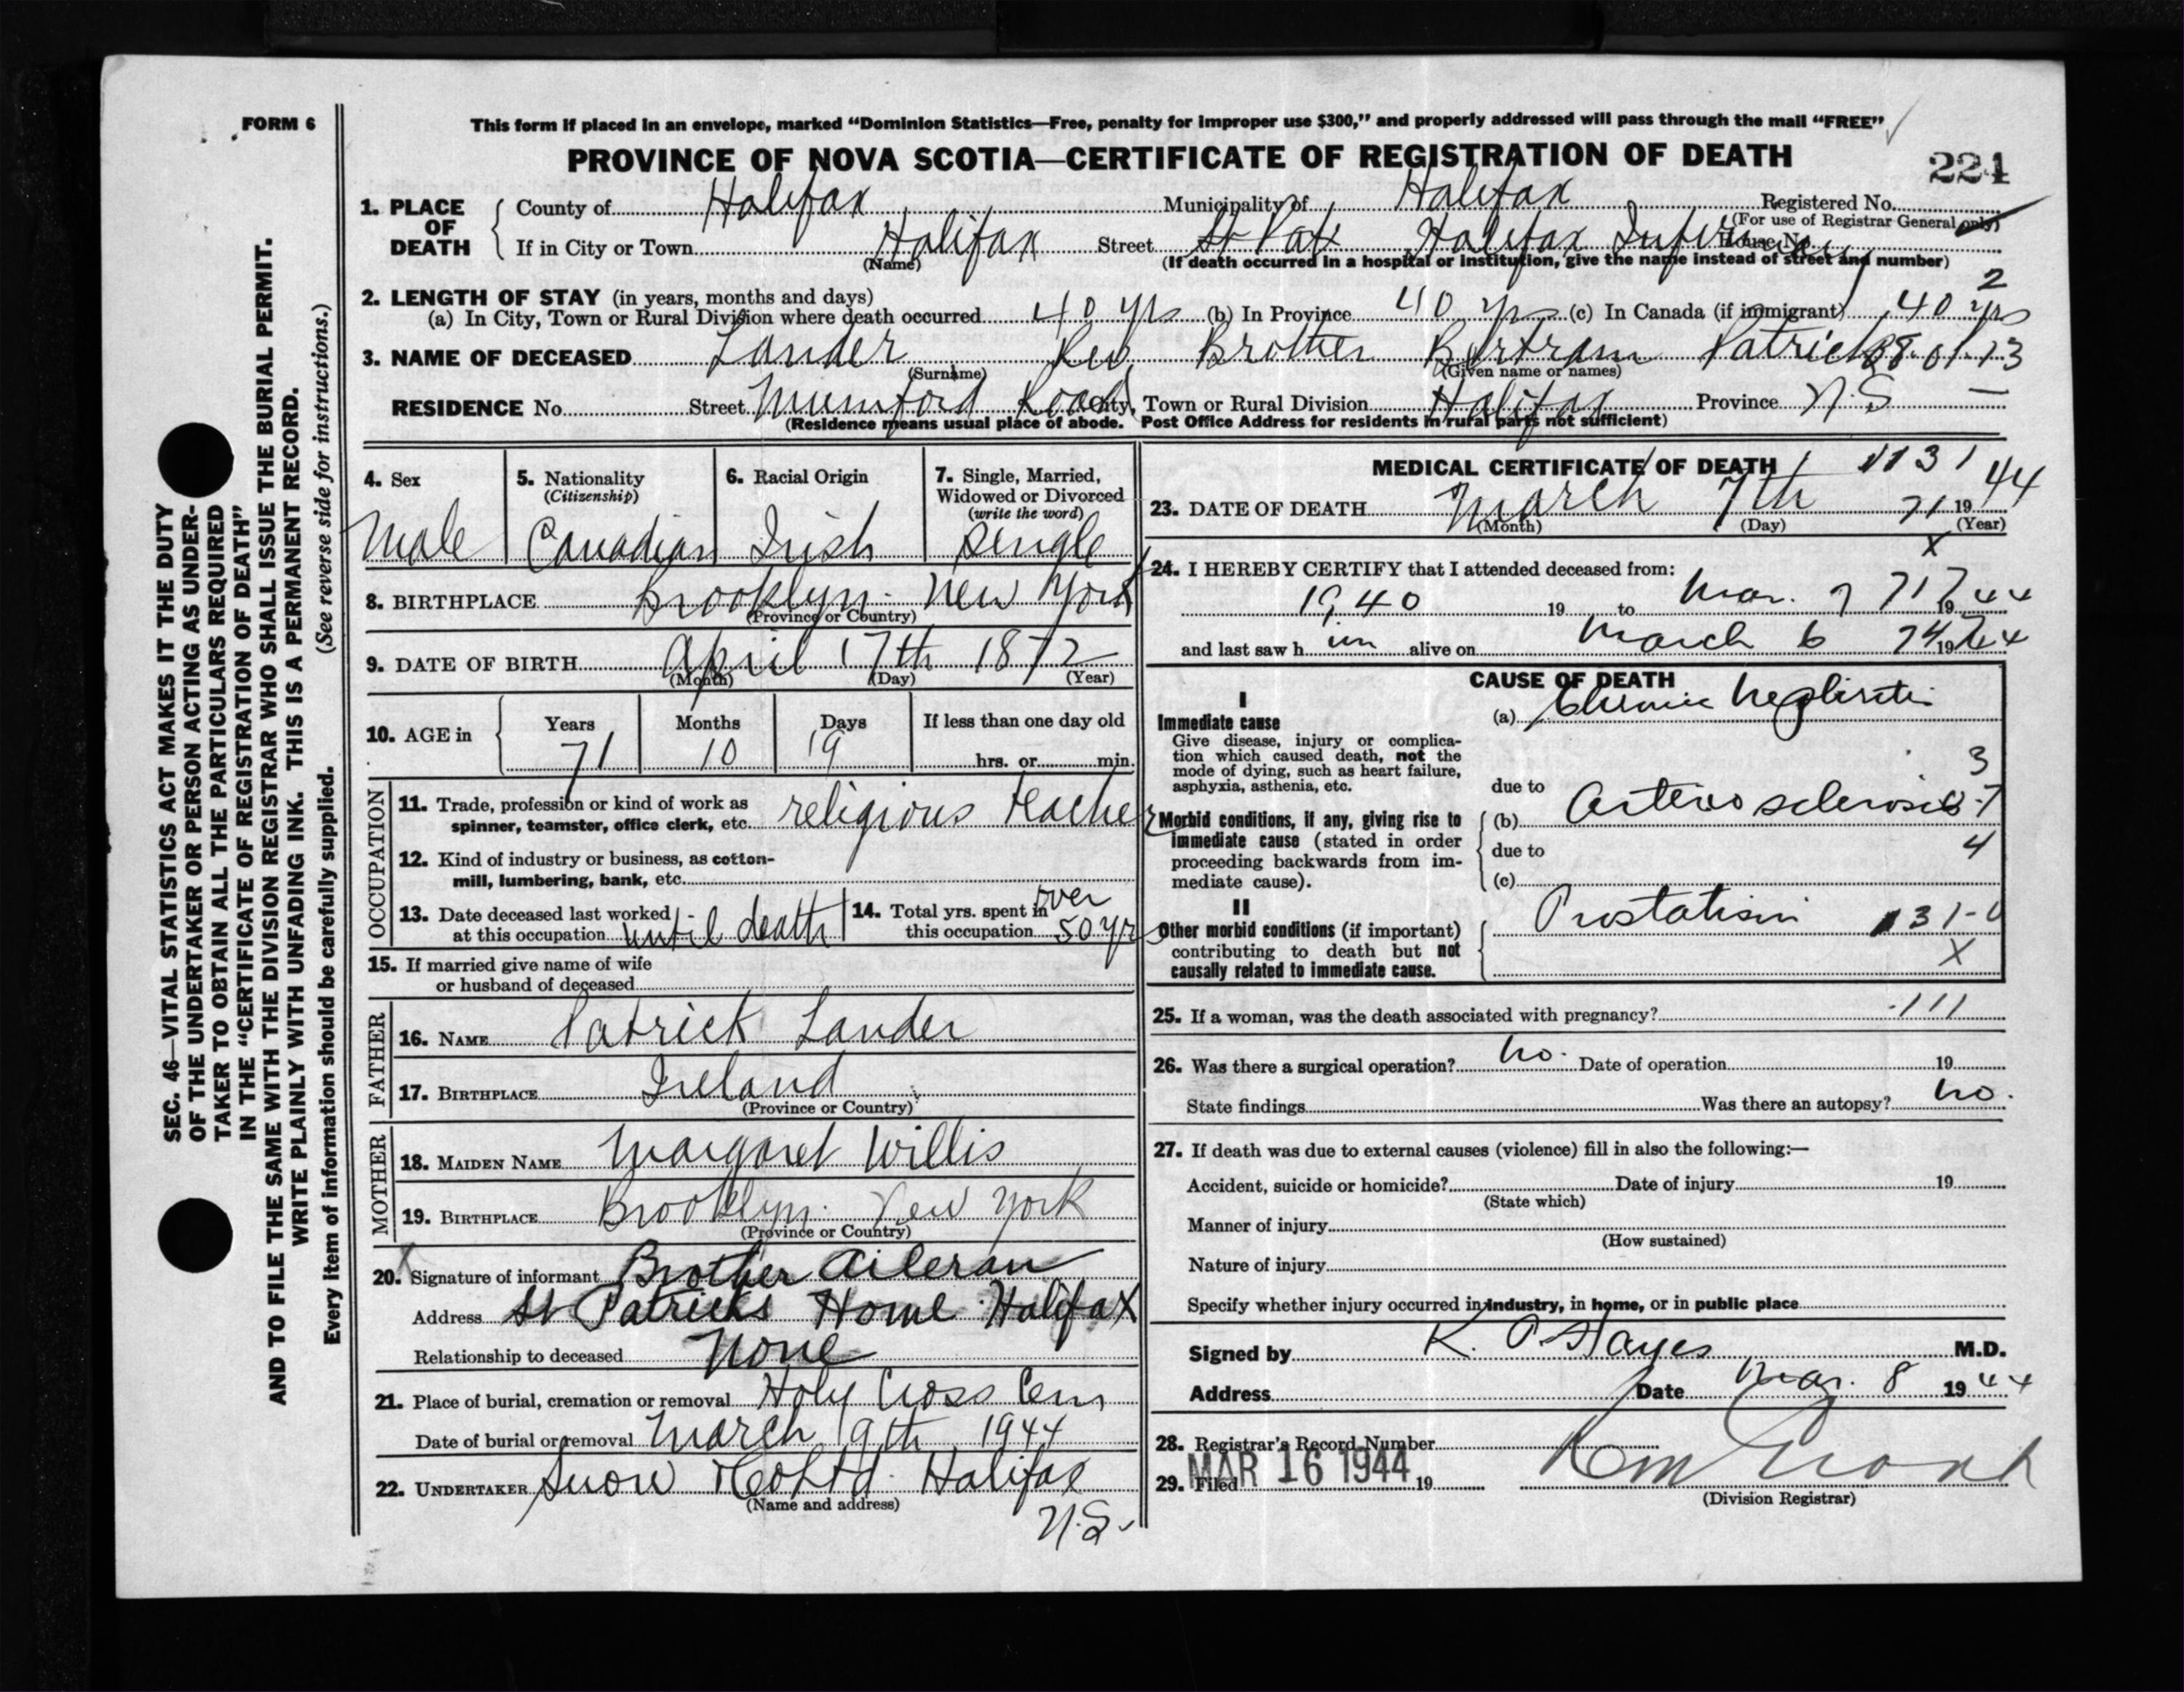 FORM 6
This form if placed in an envelope, marked “Dominion Statistics—Free, penalty for improper use $300,” and properly addressed will pass through the mail “FREE”
PROVINCE OF NOVA SCOTIA—CERTIFICATE OF REGISTRATION OF DEATH
221
1. PLACE OF DEATH
County of Halifax Municipality of Halifax Registered No.
(For use of Registrar General only)
If in City or Town Halifax Street St Pats Halifax House No.
(Name) (If death occurred in a hospital or institution, give the name instead of street and number)
2. LENGTH OF STAY (in years, months and days) 2
(a) In City, Town or Rural Division where death occurred 40 yrs (b) In Province 40 yrs (c) In Canada (if immigrant) 40 yrs
3. NAME OF DECEASED Lander Rev Brother Bertram Patrick
(Surname) (Given name or names)
RESIDENCE No. Street Mumford Road City, Town or Rural Division Halifax Province N.S
(Residence means usual place of abode. Post Office Address for residents in rural parts not sufficient)
4. Sex
Male
5. Nationality
(Citizenship)
Canadian
6. Racial Origin
Irish
7. Single, Married,
Widowed or Divorced
(write the word)
Single
8. BIRTHPLACE Brooklyn. New York
(Province or Country)
9. DATE OF BIRTH April 17th 1872
(Month) (Day) (Year)
10. AGE in Years Months Days If less than one day old
71 10 19 hrs. or min.
OCCUPATION
11. Trade, profession or kind of work as
spinner, teamster, office clerk, etc. religious teacher
12. Kind of industry or business, as cotton-
mill, lumbering, bank, etc.
13. Date deceased last worked
at this occupation until death
14. Total yrs. spent in over
this occupation 50 yrs
15. If married give name of wife
or husband of deceased
FATHER
16. NAME Patrick Lander
17. BIRTHPLACE Ireland
(Province or Country)
MOTHER
18. MAIDEN NAME Margaret Willis
19. BIRTHPLACE Brooklyn. New York
(Province or Country)
20. Signature of informant Brother Aileran
Address St Patricks Home Halifax
Relationship to deceased None
21. Place of burial, cremation or removal Holy Cross Cem
Date of burial or removal March 9th 1944
22. UNDERTAKER Snow & Co Ltd. Halifax
(Name and address)
N.S.
MEDICAL CERTIFICATE OF DEATH 131
23. DATE OF DEATH March 7th 71 1944
(Month) (Day) (Year)
X
24. I HEREBY CERTIFY that I attended deceased from:
1940 19 to Mar. 7 1944
and last saw h im alive on March 6 1944
CAUSE OF DEATH
I
Immediate cause
Give disease, injury or complica-
tion which caused death, not the
mode of dying, such as heart failure,
asphyxia, asthenia, etc.
(a) Chronic Nephritis
3
due to
Morbid conditions, if any, giving rise to
immediate cause (stated in order
proceeding backwards from im-
mediate cause).
(b) Arterio sclerosis
due to 4
(c)
II
Other morbid conditions (if important)
contributing to death but not
causally related to immediate cause.
Prostatism
X
25. If a woman, was the death associated with pregnancy? 111
26. Was there a surgical operation? no. Date of operation 19
State findings Was there an autopsy? no.
27. If death was due to external causes (violence) fill in also the following:—
Accident, suicide or homicide? Date of injury 19
(State which)
Manner of injury
(How sustained)
Nature of injury
Specify whether injury occurred in industry, in home, or in public place
Signed by K. P. Hayes M.D.
Address Date Mar. 8 1944
28. Registrar's Record Number
29. Filed MAR 16 1944 19
(Division Registrar)
SEC. 46—VITAL STATISTICS ACT MAKES IT THE DUTY
OF THE UNDERTAKER OR PERSON ACTING AS UNDER-
TAKER TO OBTAIN ALL THE PARTICULARS REQUIRED
IN THE “CERTIFICATE OF REGISTRATION OF DEATH”
AND TO FILE THE SAME WITH THE DIVISION REGISTRAR WHO SHALL ISSUE THE BURIAL PERMIT.
WRITE PLAINLY WITH UNFADING INK. THIS IS A PERMANENT RECORD.
(See reverse side for instructions.)
Every item of information should be carefully supplied.